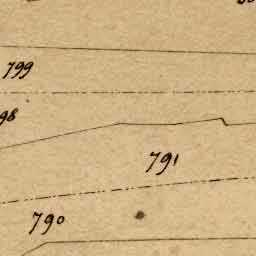 799
98
791
790